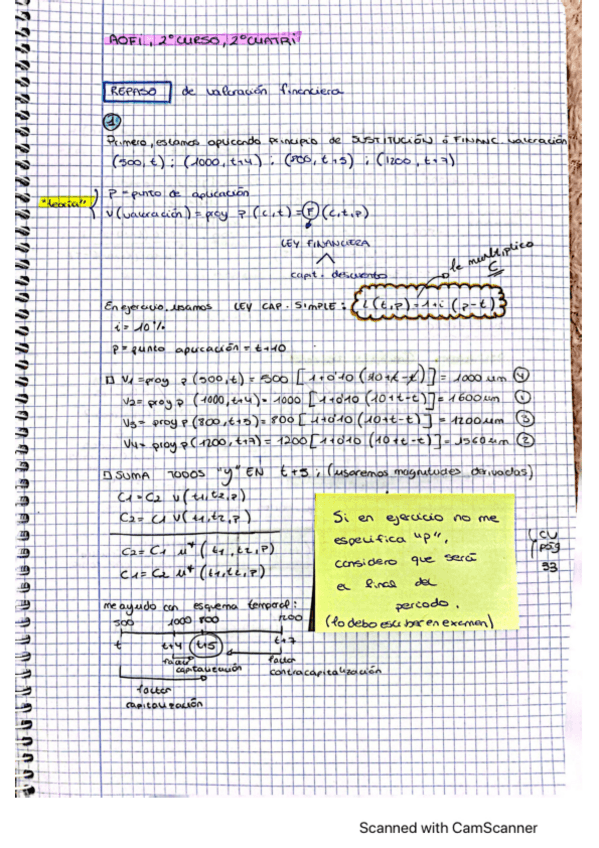 AOFI, 2º CURSO, 2º CUATRI
REPASO de valoración financiera
1.
Primero, estamos aplicando principio de SUSTITUCIÓN ó FINANC. valoración
(500, t) ; (1000, t+4) ; (800, t+5) ; (1200, t+7)
"teoria"
P = punto de aplicación
V(valoración) = proy P (C,t) = F (C,t,p)
LEY FINANCIERA
capit. descuento
le multiplico
C
En ejercicio, usamos LEY CAP. SIMPLE: L(t,p)=1+i (p-t)
i = 10%
P = punto aplicación = t+10
V1 = proy P (500,t) = 500 [1+0'10 (10+t-t)] = 1000 um 4
V2 = proy P (1000,t+4) = 1000 [1+0'10 (10+t-t)] = 1600 um 1
V3 = proy P (800,t+5) = 800 [1+0'10 (10+t-t)] = 1200 um 3
V4 = proy P (1200,t+7) = 1200 [1+0'10 (10+t-t)] = 1560 um 2
SUMA TODOS "y" EN t+5 ; (usaremos magnitudes derivadas)
C1 = C2 v(t1,t2,p)
C2 = C1 v(t1,t2,p)
C2 = C1 u* (t1,t2,p)
C1 = C2 u* (t1,t2,p)
Si en ejercicio no me
especifica "p",
considero que será
el final del
periodo.
(lo debo escribir en examen)
CU
pág
93
me ayudo con esquema temporal:
500 1000 800 1200
t t+4 t+5 t+7
factor
capitalización
factor
contracapitalización
factor
capitalización
Scanned with CamScanner